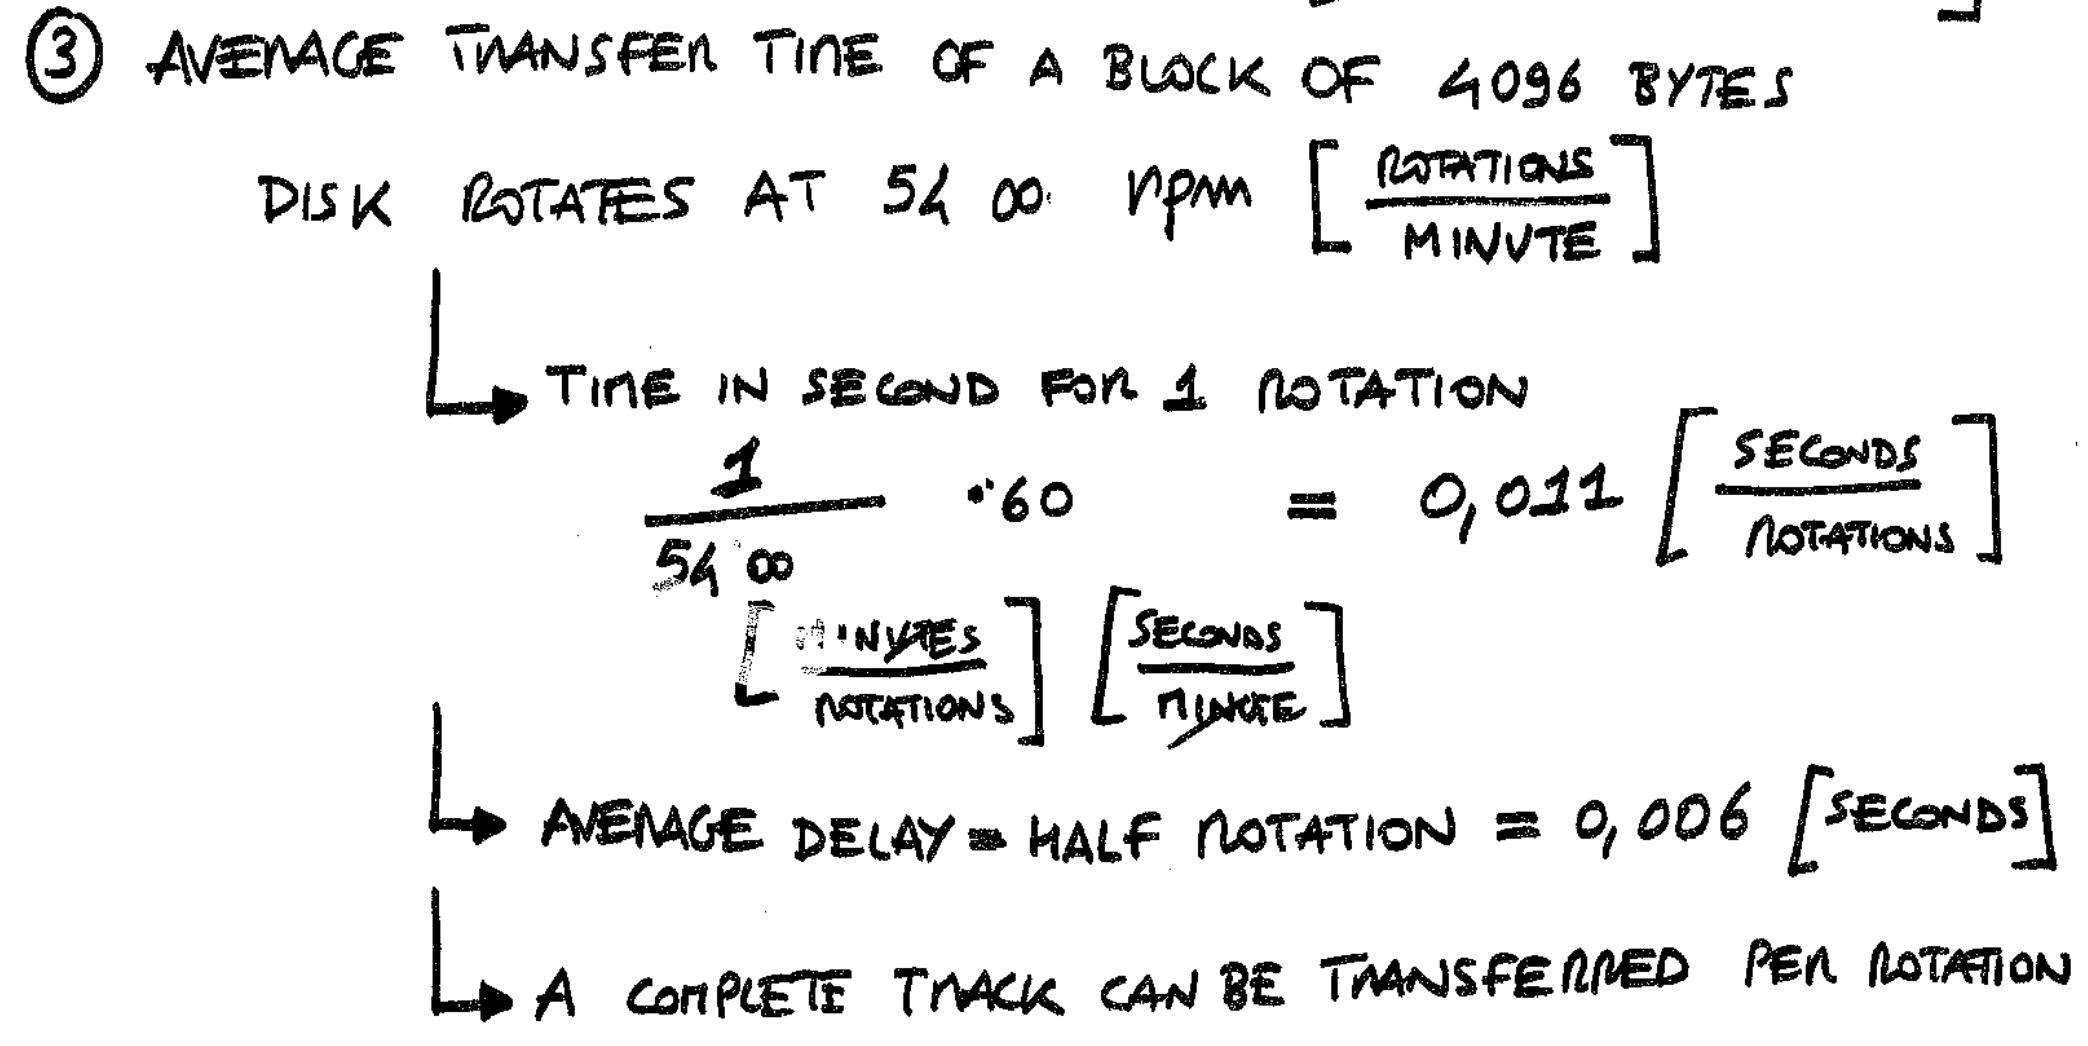 ③ AVERAGE TRANSFER TIME OF A BLOCK OF 4096 BYTES
DISK ROTATES AT 5400 rpm [ROTATIONS / MINUTE]
TIME IN SECOND FOR 1 ROTATION
1 / 5400 · 60 = 0,011 [SECONDS / ROTATIONS]
[MINUTES / ROTATIONS] [SECONDS / MINUTE]
AVERAGE DELAY = HALF ROTATION = 0,006 [SECONDS]
A COMPLETE TRACK CAN BE TRANSFERRED PER ROTATION